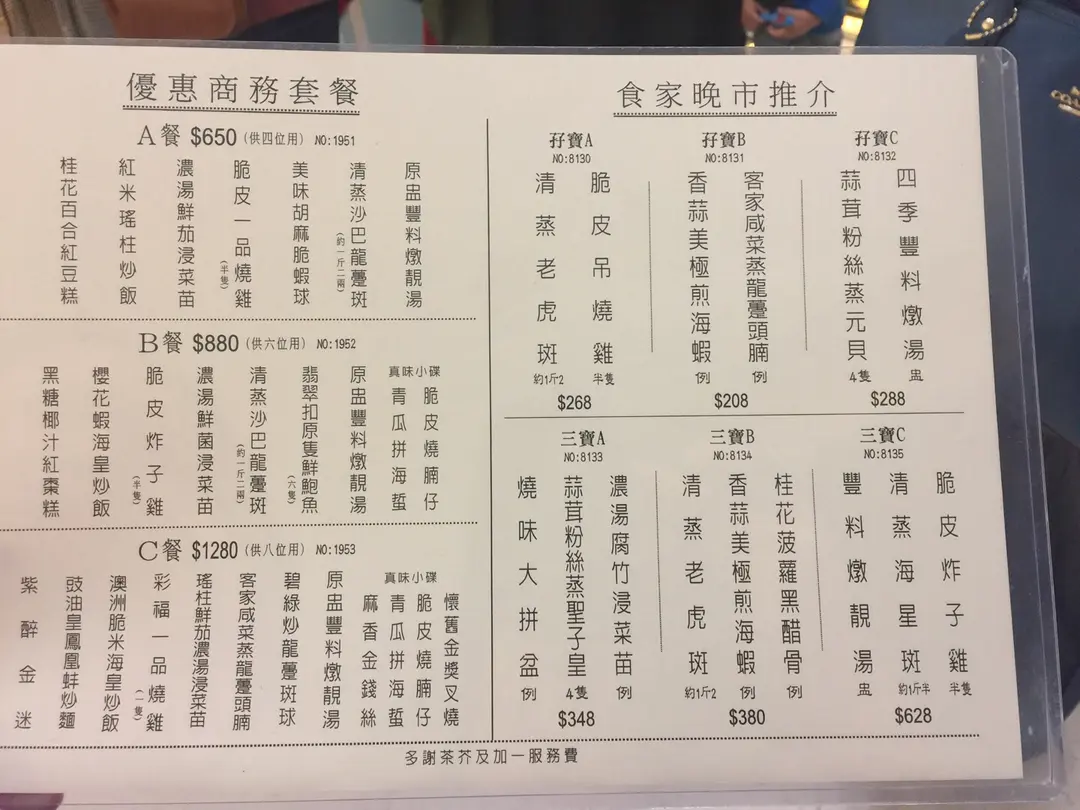 優惠商務套餐
A餐 $650 (供四位用) NO:1951
原盅豐料燉靚湯
清蒸沙巴龍躉斑 (約一斤二兩)
美味胡麻脆蝦球
脆皮一品燒雞 (半隻)
濃湯鮮茄浸菜苗
紅米瑤柱炒飯
桂花百合紅豆糕
B餐 $880 (供六位用) NO:1952
真味小碟
脆皮燒腩仔
青瓜拼海蜇
原盅豐料燉靚湯
翡翠扣原隻鮮鮑魚 (六隻)
清蒸沙巴龍躉斑 (約一斤二兩)
濃湯鮮菌浸菜苗
脆皮炸子雞 (半隻)
櫻花蝦海皇炒飯
黑糖椰汁紅棗糕
C餐 $1280 (供八位用) NO:1953
真味小碟
懷舊金獎叉燒
脆皮燒腩仔
青瓜拼海蜇
麻香金錢絲
原盅豐料燉靚湯
碧綠炒龍躉斑球
客家咸菜蒸龍躉頭腩
瑤柱鮮茄濃湯浸菜苗
彩福一品燒雞 (一隻)
澳洲脆米海皇炒飯
豉油皇鳳凰蚌炒麵
紫醉金迷
食家晚市推介
孖寶A
NO:8130
脆皮吊燒雞 半隻
清蒸老虎斑 約1斤2
$268
孖寶B
NO:8131
客家咸菜蒸龍躉頭腩 例
香蒜美極煎海蝦 例
$208
孖寶C
NO:8132
四季豐料燉湯 盅
蒜茸粉絲蒸元貝 4隻
$288
三寶A
NO:8133
濃湯腐竹浸菜苗 例
蒜茸粉絲蒸聖子皇 4隻
燒味大拼盆 例
$348
三寶B
NO:8134
桂花菠蘿黑醋骨 例
香蒜美極煎海蝦 例
清蒸老虎斑 約1斤2
$380
三寶C
NO:8135
脆皮炸子雞 半隻
清蒸海星斑 約1斤半
豐料燉靚湯 盅
$628
多謝茶芥及加一服務費